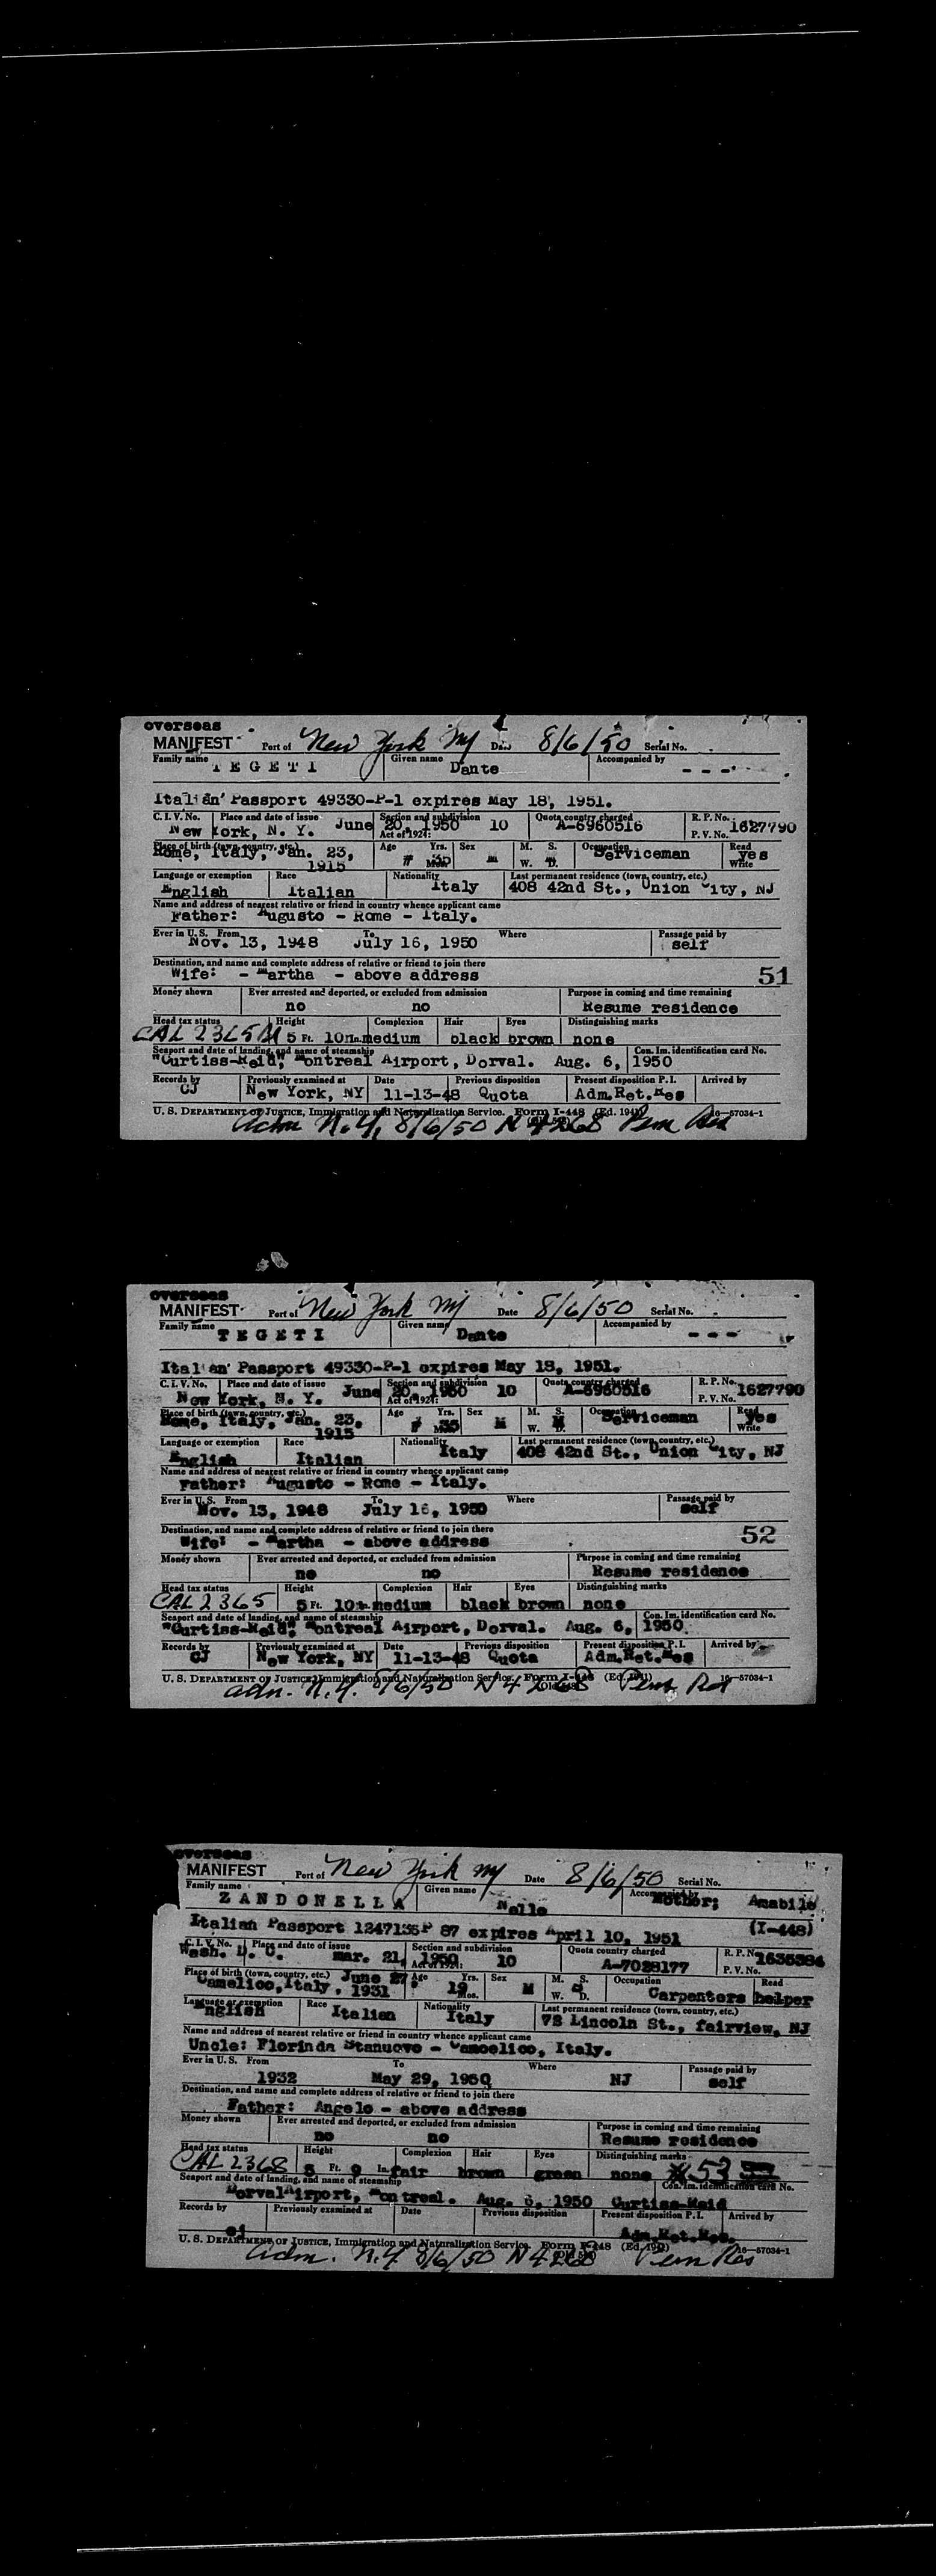 overseas
MANIFEST Port of New York NY Date 8/6/50 Serial No.
Family name Given name Accompanied by
TEGETI Dante - - -
Italian Passport 49330-P-1 expires May 18, 1951.
C. I. V. No. Place and date of issue Section and subdivision Quota country charged R. P. No.
New York, N. Y. June 20, 1950 10 A-6960516 1627790
Act of 1924: P. V. No.
Place of birth (town, country, etc.) Age Yrs. Sex M. S. Occupation Read
Rome, Italy, Jan. 23, 1915 35 M Serviceman yes
Mos. W. D. Write
Language or exemption Race Nationality Last permanent residence (town, country, etc.)
English Italian Italy 408 42nd St., Union City, NJ
Name and address of nearest relative or friend in country whence applicant came
Father: Augusto - Rome - Italy.
Ever in U. S. From To Where Passage paid by
Nov. 13, 1948 July 16, 1950 self
Destination, and name and complete address of relative or friend to join there
Wife: - Martha - above address 51
Money shown Ever arrested and deported, or excluded from admission Purpose in coming and time remaining
no no Resume residence
Head tax status Height Complexion Hair Eyes Distinguishing marks
CAL 2365 5 Ft. 10 In. medium black brown none
Seaport and date of landing, and name of steamship Con. Im. identification card No.
"Curtiss-Reid" Montreal Airport, Dorval. Aug. 6, 1950
Records by Previously examined at Date Previous disposition Present disposition P. I. Arrived by
CJ New York, NY 11-13-48 Quota Adm.Ret.Res
U. S. DEPARTMENT OF JUSTICE, Immigration and Naturalization Service. Form I-448 (Ed. 1941) 16-57034-1
Adm N.Y. 8/6/50 N 4268 Perm Res
overseas
MANIFEST Port of New York NY Date 8/6/50 Serial No.
Family name Given name Accompanied by
TEGETI Dante - - -
Italian Passport 49330-P-1 expires May 18, 1951.
C. I. V. No. Place and date of issue Section and subdivision Quota country charged R. P. No.
New York, N. Y. June 20, 1950 10 A-6960516 1627790
Act of 1924: P. V. No.
Place of birth (town, country, etc.) Age Yrs. Sex M. S. Occupation Read
Rome, Italy, Jan. 23, 1915 35 M M Serviceman yes
Mos. W. D. Write
Language or exemption Race Nationality Last permanent residence (town, country, etc.)
English Italian Italy 408 42nd St., Union City, NJ
Name and address of nearest relative or friend in country whence applicant came
Father: Augusto - Rome - Italy.
Ever in U. S. From To Where Passage paid by
Nov. 13, 1948 July 16, 1950 self
Destination, and name and complete address of relative or friend to join there
Wife: - Martha - above address 52
Money shown Ever arrested and deported, or excluded from admission Purpose in coming and time remaining
no no Resume residence
Head tax status Height Complexion Hair Eyes Distinguishing marks
CAL 2365 5 Ft. 10 In. medium black brown none
Seaport and date of landing, and name of steamship Con. Im. identification card No.
"Curtiss-Reid" Montreal Airport, Dorval. Aug. 6, 1950
Records by Previously examined at Date Previous disposition Present disposition P. I. Arrived by
CJ New York, NY 11-13-48 Quota Adm.Ret.Res
U. S. DEPARTMENT OF JUSTICE, Immigration and Naturalization Service. Form I-448 (Ed. 1941) 16-57034-1
adm. N.Y. 8/6/50 N 4268 Perm Res
overseas
MANIFEST Port of New York NY Date 8/6/50 Serial No.
Family name Given name Accompanied by
ZANDONELLA Nello Mother; Amabile
Italian Passport 1247135P 87 expires April 10, 1951 (I-448)
C. I. V. No. Place and date of issue Section and subdivision Quota country charged R. P. No.
Wash. D. C. Mar. 21, 1950 10 A-7028177 1635384
Act of 1924: P. V. No.
Place of birth (town, country, etc.) Age Yrs. Sex M. S. Occupation Read
Camelico, Italy, June 27, 1931 19 M S Carpenters helper
Mos. W. D.
Language or exemption Race Nationality Last permanent residence (town, country, etc.)
English Italian Italy 78 Lincoln St., fairview, NJ
Name and address of nearest relative or friend in country whence applicant came
Uncle: Florinda Stanuovo - Camoelico, Italy.
Ever in U. S. From To Where Passage paid by
1932 May 29, 1950 NJ self
Destination, and name and complete address of relative or friend to join there
Father: Angelo - above address
Money shown Ever arrested and deported, or excluded from admission Purpose in coming and time remaining
no no Resume residence
Head tax status Height Complexion Hair Eyes Distinguishing marks
CAL 2368 5 Ft. 9 In. fair brown green none 53
Seaport and date of landing, and name of steamship Con. Im. identification card No.
Dorval Airport, Montreal. Aug. 6, 1950 Curtiss-Reid
Records by Previously examined at Date Previous disposition Present disposition P. I. Arrived by
cj Adm.Ret.Res.
U. S. DEPARTMENT OF JUSTICE, Immigration and Naturalization Service. Form I-448 (Ed. 1941) 16-57034-1
Adm. N.Y. 8/6/50 N 4268 Perm Res